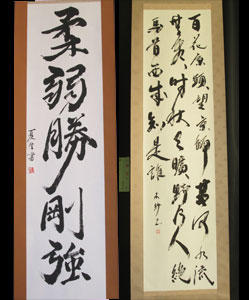 百花原頭望京師黄河水流
無尽時秋天曠野行人絶
馬首西来知是誰
柔弱勝剛強